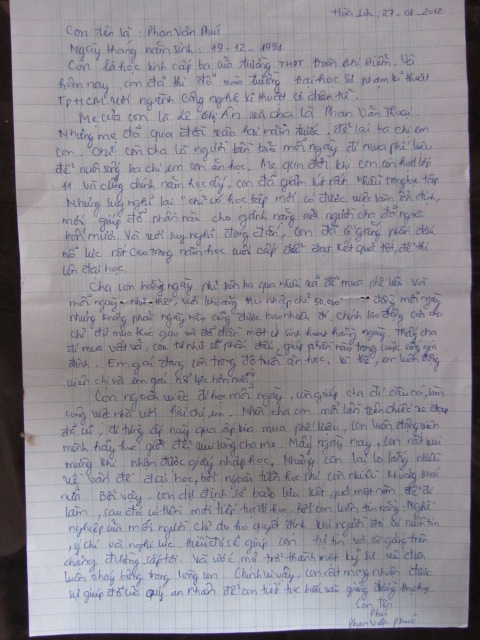 Hòa Lân, 27-08-2012
Con tên là: Phan Văn Phúc
Ngày tháng năm sinh: 19-12-1994
Con là học sinh cấp ba của trường THPT Trần Thị Và
hôm nay, con đã thi đỗ vào trường đại học Sư phạm kĩ thuật
TpHCM với ngành Công nghệ kĩ thuật cơ điện tử.
Mẹ của con là Lê Thị Ân và cha là Phan Văn Thoại
Nhưng mẹ đã qua đời vào hai năm trước, để lại ba chị em
con. Chỉ còn cha là người bôn tẩu mỗi ngày đi mua phế liệu
để nuôi sống ba chị em con ăn học. Mẹ qua đời khi con còn học lớp
11 và cũng chính năm học ấy, con đã giảm sút rất nhiều trong học tập
Nhưng suy nghĩ lại "chỉ có học tập mới có được việc làm ổn định,
mới giúp đỡ phần nào cho gánh nặng của người cha đã ngoài
năm mươi. Và với suy nghĩ đúng đắn, con đã cố gắng phấn đấu
nỗ lực rất cao trong năm học cuối cấp để đạt kết quả tốt, để thi
lên đại học.
Cha con hằng ngày phải đi qua nhiều để mua phế liệu và
mỗi ngày như thế, với khoảng thu nhập chỉ 50.000 đồng mỗi ngày
nhưng không phải ngày nào cũng được bao nhiêu đó, chính lao động của cha
chỉ đủ mua thức ăn và để dành một ít sinh hoạt hằng ngày. Thấy cha
đi mua vất vả, con phần nào giúp phần nào trong cuộc sống gia
đình. Em gái đang còn trong độ tuổi ăn học, vì thế, em luôn động
viên chị và em gái nỗ lực hơn nữa.
Con ngoài việc đi học mỗi ngày, còn giúp cha đi câu cá, làm
công việc nhà với hai chị em. Nhìn cha con mỗi lần trên chiếc xe đạp
đã cũ, đi từng ấp này qua ấp kia mua phế liệu, con luôn động viên
mình hãy học giỏi để vui lòng cha mẹ. Mấy ngày nay, con rất vui
mừng khi nhận được giấy nhập học. Nhưng con lại lo lắng nhiều
về vấn đề đại học, bởi ngoài tiền học phí còn nhiều khoảng khác
nữa. Bởi vậy, con dự định sẽ bảo lưu kết quả một năm để đi
làm, sau đó có tiền mới tiếp tục đi học. Bởi con luôn tin rằng: Nghề
nghiệp của mỗi người chỉ do họ quyết định khi người đó có niềm tin
, ý chí và nghị lực. Điều đó sẽ giúp con tự tin và cố gắng trên
chặng đường sắp tới. Và ước mơ trở thành một kỹ sư cơ điện
luôn cháy bỏng trong lòng con. Chính vì vậy, con rất mong nhận được
sự giúp đỡ của quý ân nhân để con tiếp tục bước vào giảng đường đại học.
Con tên
Phúc
Phan Văn Phúc